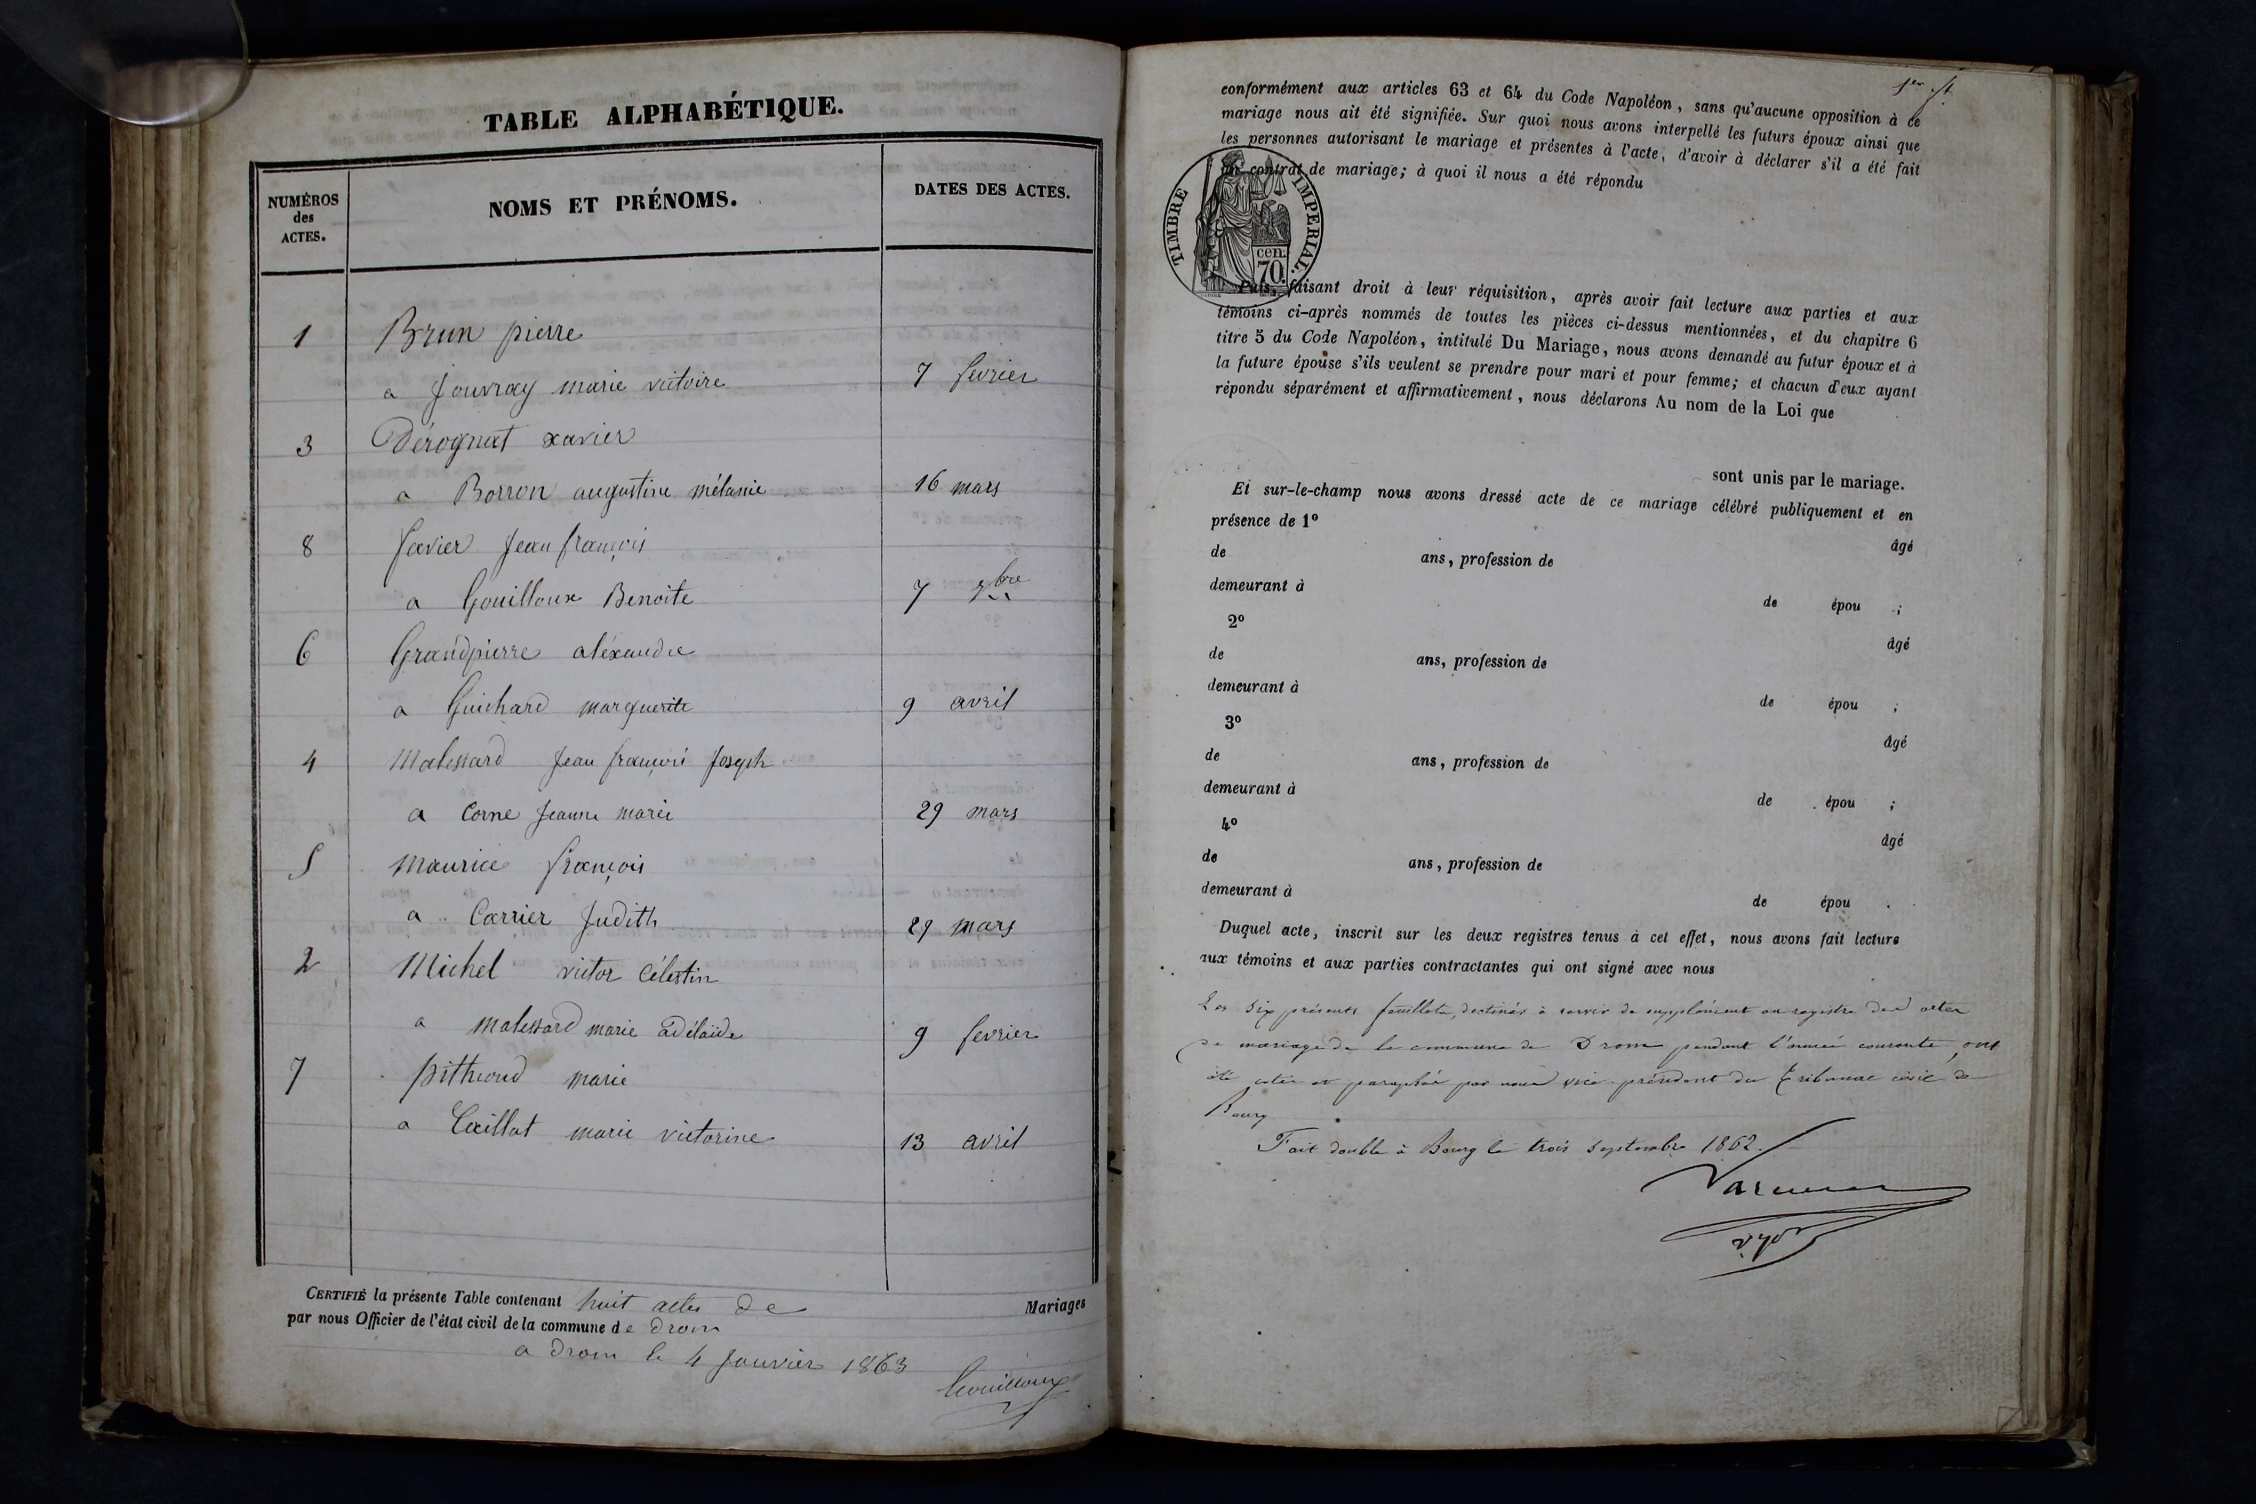 TABLE ALPHABÉTIQUE.
NUMÉROS
des
ACTES.
NOMS ET PRÉNOMS.
DATES DES ACTES.
1 Brun pierre
a Jouvray marie victoire 7 fevrier
3 Dérognat xavier
a Borron augustine mélanie 16 mars
8 favier Jean françois
a Gouilloux Benoite 7
6 Grandpierre aléxandre
a Guichard marguerite 9 avril
4 Malessard Jean françois Joseph
a Corne Jeanne marie 29 mars
5 Maurice françois
a Carrier Judith 29 mars
2 Michel victor Célestin
a malessard marie adélaïde 9 fevrier
7 pithioud marie
a Caillat marie victorine 13 avril
CERTIFIÉ la présente Table contenant huit actes de Mariages
par nous Officier de l'état civil de la commune de drom
a drom le 4 Janvier 1863
Gouilloux
1er ft.
conformément aux articles 63 et 64 du Code Napoléon, sans qu'aucune opposition à ce
mariage nous ait été signifiée. Sur quoi nous avons interpellé les futurs époux ainsi que
les personnes autorisant le mariage et présentes à l'acte, d'avoir à déclarer s'il a été fait
un contrat de mariage; à quoi il nous a été répondu
TIMBRE IMPERIAL.
cen.
70.
Puis, faisant droit à leur réquisition, après avoir fait lecture aux parties et aux
témoins ci-après nommés de toutes les pièces ci-dessus mentionnées, et du chapitre 6
titre 5 du Code Napoléon, intitulé Du Mariage, nous avons demandé au futur époux et à
la future épouse s'ils veulent se prendre pour mari et pour femme; et chacun d'eux ayant
répondu séparément et affirmativement, nous déclarons Au nom de la Loi que
sont unis par le mariage.
Et sur-le-champ nous avons dressé acte de ce mariage célébré publiquement et en
présence de 1º
âgé
de ans, profession de
demeurant à
de épou ;
2º
âgé
de ans, profession de
demeurant à
de épou ;
3º
âgé
de ans, profession de
demeurant à
de épou ;
4º
âgé
de ans, profession de
demeurant à
de épou .
Duquel acte, inscrit sur les deux registres tenus à cet effet, nous avons fait lecture
aux témoins et aux parties contractantes qui ont signé avec nous
Les six présents feuillets, destinés à servir de supplément au registre des actes
de mariage de la commune de Drom pendant l'année courante, ont
été cotés et paraphés par nous vice-président du tribunal civil de
Bourg
Fait double à Bourg le trois septembre 1862.